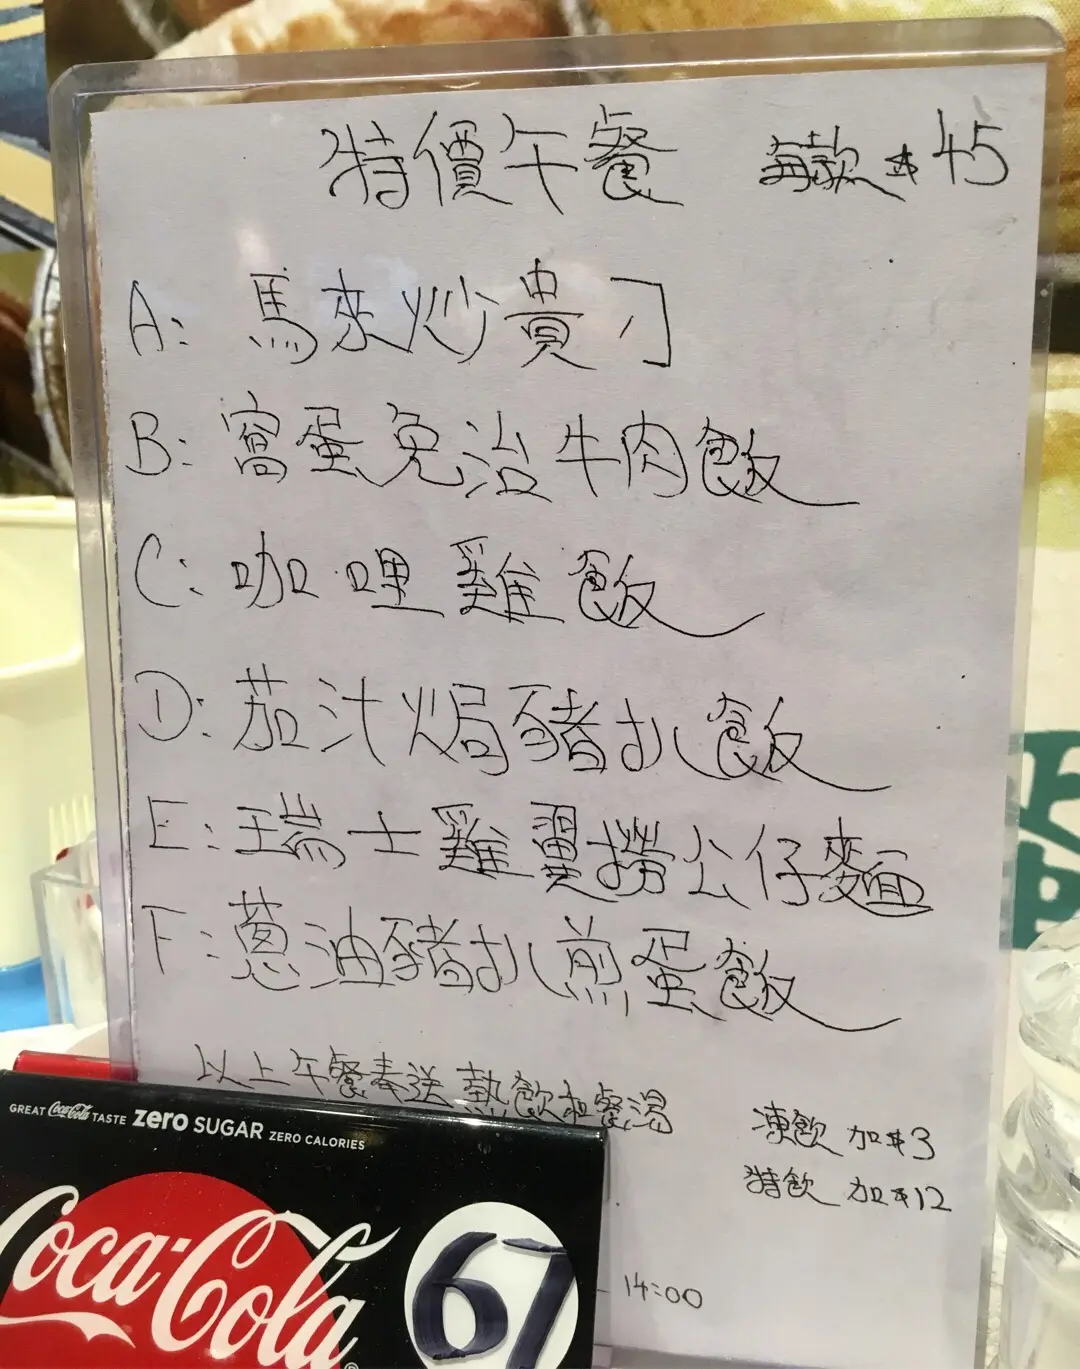 特價午餐 每款$45
A: 馬來炒貴刁
B: 窩蛋免治牛肉飯
C: 咖哩雞飯
D: 茄汁焗豬扒飯
E: 瑞士雞翼撈公仔麵
F: 蔥油豬扒煎蛋飯
以上午餐奉送熱飲和餐湯
凍飲 加$3
特飲 加$12
14:00
GREAT Coca-Cola TASTE zero SUGAR ZERO CALORIES
Coca-Cola
67